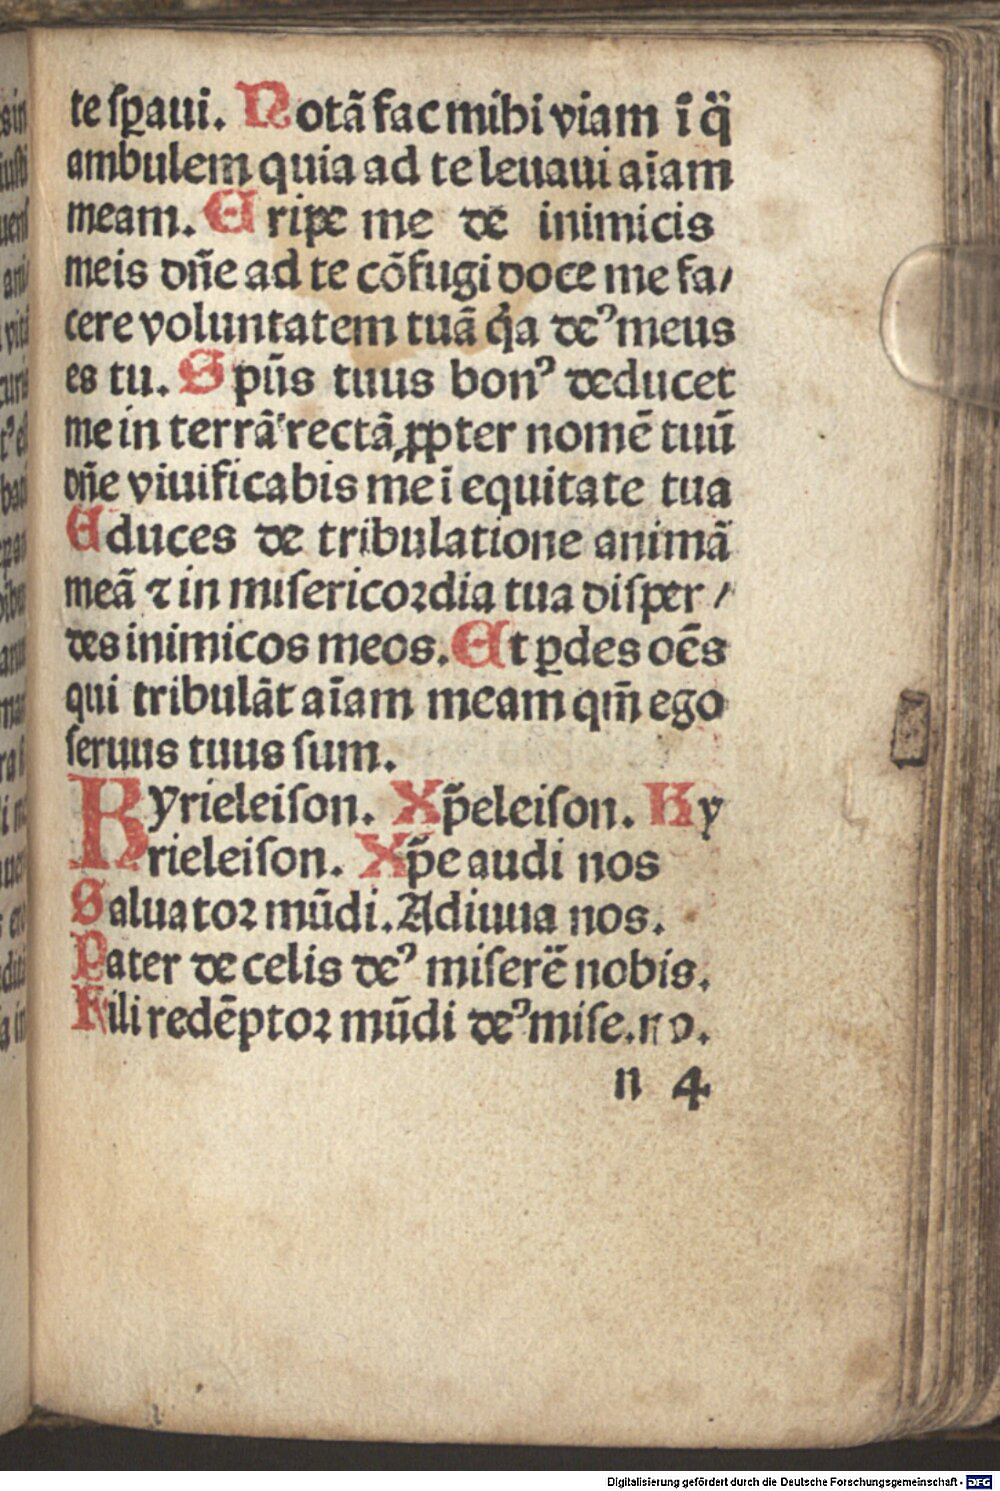 te ſꝑaui. Notã fac mihi viam ĩ q̈
ambulem quia ad te leuaui aĩam
meam. Eripe me de inimicis
meis dñe ad te cõfugi doce me fa/
cere voluntatem tuã q̇a deꝰ meus
es tu. Spũs tuus bonꝰ deducet
me in terrã rectã ꝓpter nomẽ tuũ
dñe viuificabis me ĩ equitate tua
Educes de tribulatione animã
meã ⁊ in miſericoꝛdia tua diſper/
des inimicos meos. Et ꝑdes oẽs
qui tribulãt aĩam meam qm̃ ego
ſeruus tuus ſum.
Kyrieleiſon. Xp̃eleiſon. Ky
rieleiſon. Xp̃e audi nos
Saluatoꝛ mũdi. Adiuua nos.
Pater de celis deꝰ miſerẽ nobis.
Fili redẽptoꝛ mũdi deꝰ miſe. no.
n 4
Digitalisierung gefördert durch die Deutsche Forschungsgemeinschaft - DFG